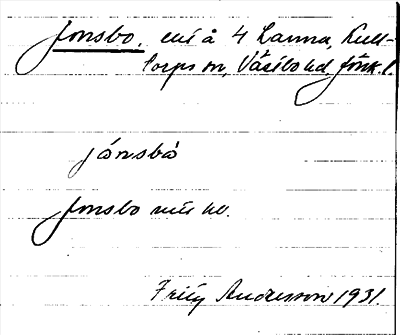 Jonsbo, enl å 4 Lanna, Kull-
torps sn, Västbo hd. Jönk. l.
jónsbò
Jonsbo
Fritz Andersson 1931.